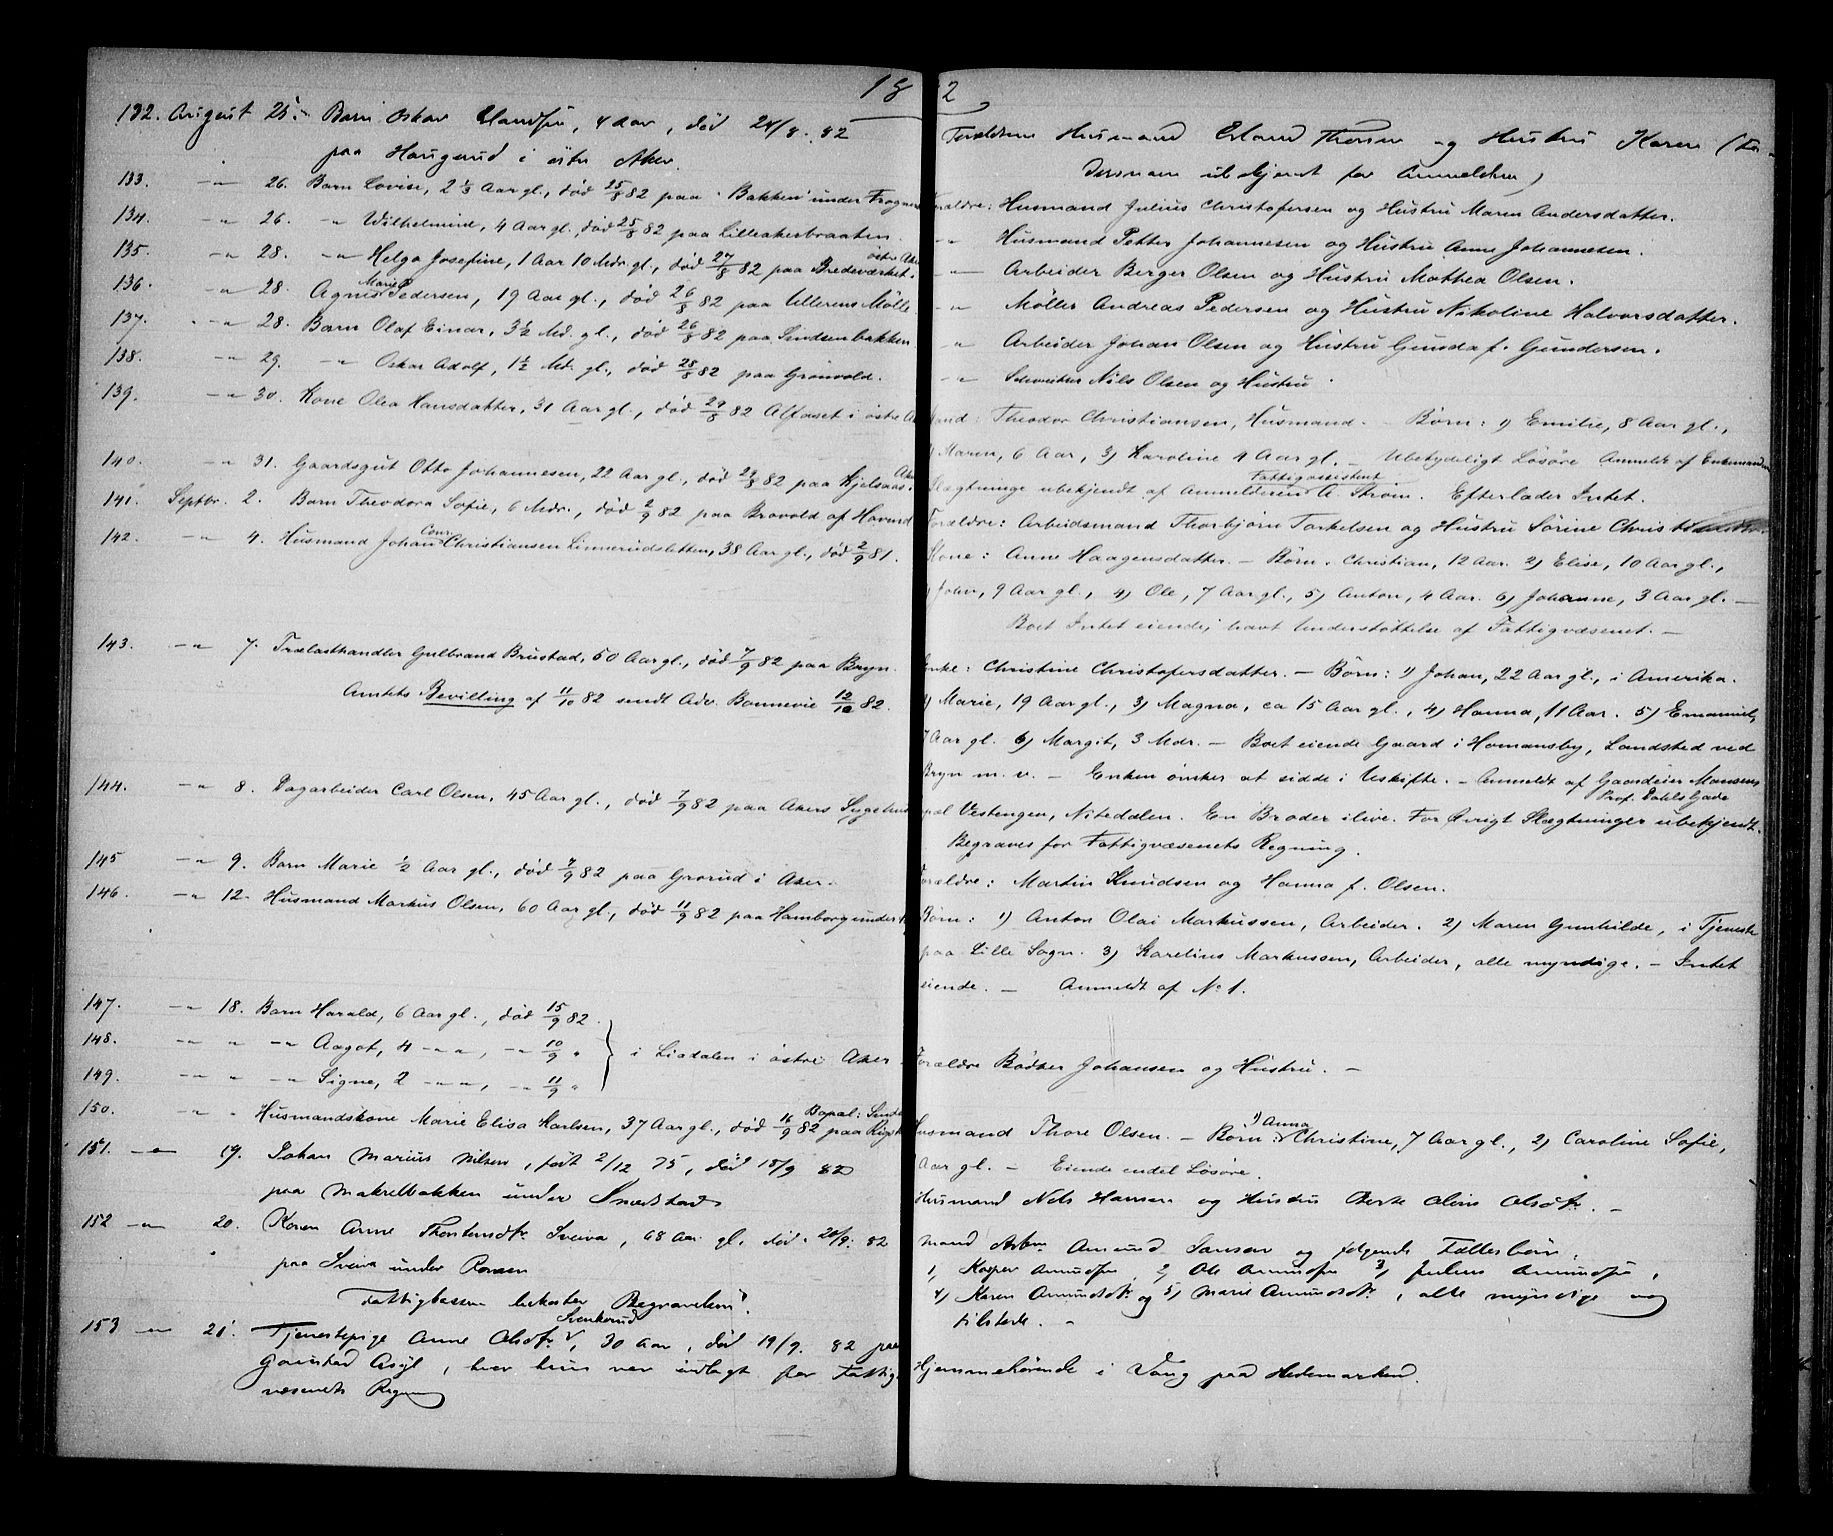 18 2
132. August 25. Barn Oskar , 4 Aar, död 24/8. 82
paa Haugerud i östre Aker.
133. -"- 26. Barn Lovise, 2 1/3 Aar gl., död 25/8 82 paa Bakken under Frogner
134. -"- 26. -"- Wilhelmine, 4 Aar gl., död 25/8 82 paa Lilleakerbraaten.
135. -"- 28. -"- Helga Josefine, 1 Aar 10 Mdr. gl., död 27/8 82 paa Bredeværket. östre Aker
136. -"- 28. Agnes Marie Pedersen, 19 Aar gl., död 26/8 82 paa Ullerens Mölle
137. -"- 28. Barn Olaf Einar, 3 1/2 Md. gl., död 26/8 82 paa Sinsenbakken
138. -"- 29. -"- Oskar Adolf, 1 1/2 Md. gl., död 28/8 82 paa Grönvold.
139. -"- 30. Kone Olea Hansdatter, 31 Aar gl., död 29/8 82 Alfaset i östre A
140. -"- 31. Gaardsgut Otto Johannesen, 22 Aar gl., död 29/8 82 paa Kjelsaas. Aker
141. Septbr. 2. Barn Theodora Sofie, 6 Mdr., död 2/9 82 paa Brovold af Hovind
142. -"- 4. Husmand Johan Conr. Christiansen Linnerudsletten, 38 Aar gl., död 2/9 81.
143. -"- 7. Trælasthandler Gulbrand Brustad, 50 Aar gl., död 7/9 82 paa Bryn.
Amtets Bevilling af 11/10 82 sendt Adv. Bonnevie 12/10 82.
144. -"- 8. Dagarbeider Carl Olsen, 45 Aar gl., död 7/9 82 paa Akers Sygehus
145 -"- 9. Barn Marie 1/2 Aar gl., död 7/9 82 paa Grorud i Aker.
146. -"- 12. Husmand Markus Olsen, 60 Aar gl., död 11/9 82 paa Hamborg under
147. -"- 18. Barn Harald, 6 Aar gl., död 15/9 82.
148. -"- " -"- Aagot, 4 -"- ", -"- 10/9 " } i Liadalen i östre Aker
149. -"- " -"- Signe, 2 -"- ", -"- 11/9 "
150. -"- " Husmandskone Marie Elisa Karlsen, 37 Aar gl., död 16/9 82 paa Rigsh Bopæl:
151. -"- 19. Johan Marius Nilsen, född 2/12 75, död 15/9 82
paa Makrelbakken under
152 -"- 20. Karen Anne Sveiva, 68 Aar gl. död 20/9. 82
paa Sveiva under
Fattigkassen bekoster Begravelsen.
153 -"- 21. Tjenestepige Anne Olsdtr. Svenkerud, 30 Aar, död 19/9. 82 paa
Gaustad Asyl, hvor hun var indlagt for Fattig
væsenets Regning
Forældrene Husmand Erland Thorsen og Hustru Karen (Fa-
dersnavn ubekjendt for Anmelderen)
Forældre: Husmand Julius Christofersen og Hustru Maren Andersdatter.
-"- Husmand Petter Johannesen og Hustru Anne Johannesen.
-"- Arbeider Berger Olsen og Hustru Mathea Olsen.
-"- Möller Andreas Pedersen og Hustru Nikoline Halvorsdatter.
-"- Arbeider Johan Olsen og Hustru Gunda f. Gundersen.
-"- Schweitzer Nils Olsen og Hustru.
Mand: Theodor Christiansen, Husmand. - Börn: 1) Emilie, 8 Aar gl.,
2) Maren, 6 Aar, 3) Karoline 4 Aar gl. - Ubetydeligt Lösöre Anmeldt af Enkemanden
Slægtninge ubekjendt af Anmelderen Fattigassistent A. Ström. Efterlader Intet.
Forældre: Arbeidsmand Thorbjörn Torkelsen og Hustru Sörine
Kone: Anne Haagensdatter. - Börn. Christian, 12 Aar. 2) Elise, 10 Aar gl.,
3) John, 9 Aar gl., 4) Ole, 7 Aar gl., 5) Anton, 4 Aar. 6) Johanne, 3 Aar gl. -
Boet Intet eiende; havt Understöttelse af Fattigvæsenet. -
Enke: Christine Christofersdatter. - Börn: 1) Johan, 22 Aar gl., i Amerika.
2) Marie, 19 Aar gl., 3) Magna, ca 15 Aar gl., 4) Hanna, 11 Aar. 5) Emanuel,
7 Aar gl. 6) Margit, 3 Mdr. - Boet eiende Gaard i Homansby, Landsted ved
Bryn m. v. - Enken önsker at sidde i Uskifte. - Anmeldt af Gaardeier Monsens
Prof. Dahls Gade
Vestengen, Nitedalen. En Broder ilive. For Övrigt Slægtninger ubekjendt.
Begraves for Fattigvæsenets Regning.
Forældre: Martin Knudsen og Hanna f. Olsen.
Börn: 1) Anton Olai Markussen, Arbeider. 2) Maren Gunhilde, i Tjeneste
paa Lille Sogn. 3) Karelius Markussen, Arbeider, alle myndige. - Intet
eiende. - Anmeldt af No 1.
Forældre Bödker Johansen og Hustru. -
Husmand Thore Olsen. - Börn: 1) Anna Christine, 7 Aar gl., 2) Caroline Sofie,
Aar gl. - Eiende endel Lösöre.
Husmand Nils Hansen og Hustru Berte Olsdtr. -
Mand Arbm Amund Larsen og fölgende Fællesbörn:
1, Kasper Amundsen 2, Ole Amundsen 3, Julius Amundsen,
4) Karen Amundsdtr. og 5) Marie Amundsdtr., alle myndige og
tilstede. -
Hjemmehörende i Vang paa Hedemarken.